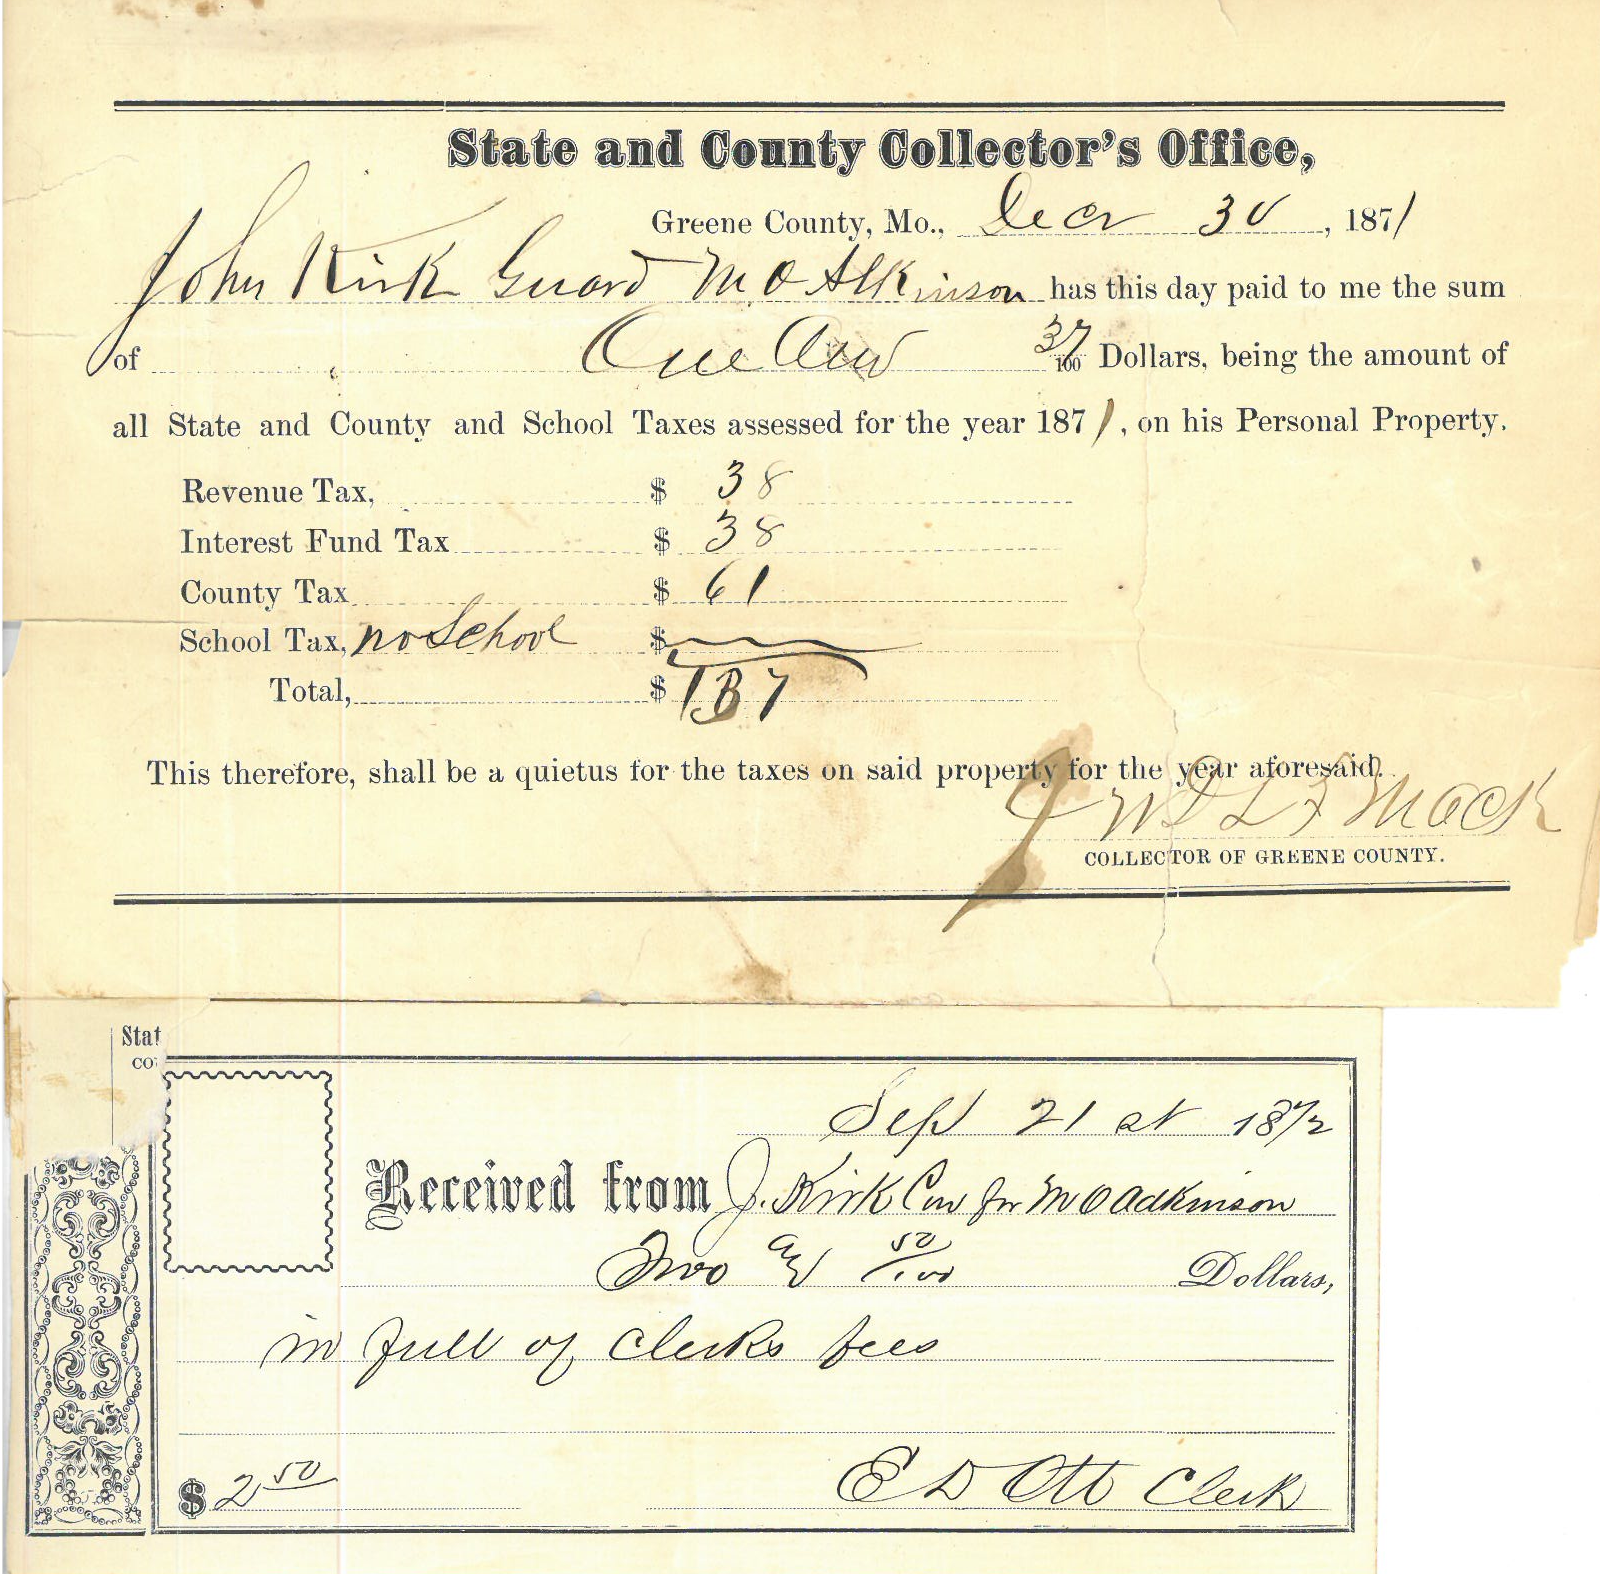 State and County Collector's Office,
Greene County, Mo., Decr 30, 1871
John Kirk Guard M O Atkinson has this day paid to me the sum
of One And 37/100 Dollars, being the amount of
all State and County and School Taxes assessed for the year 1871, on his Personal Property.
Revenue Tax, $ 38
Interest Fund Tax $ 38
County Tax $ 61
School Tax, no School $
Total, $ 137
This therefore, shall be a quietus for the taxes on said property for the year aforesaid.
Mack
COLLECTOR OF GREENE COUNTY.
Stat
co
Sep 21 st 1872
Received from J. Kirk Cur for M O Adkinson
Two & 50/100 Dollars,
in full of Clerks fees
$ 2 50
E D Ott Clerk